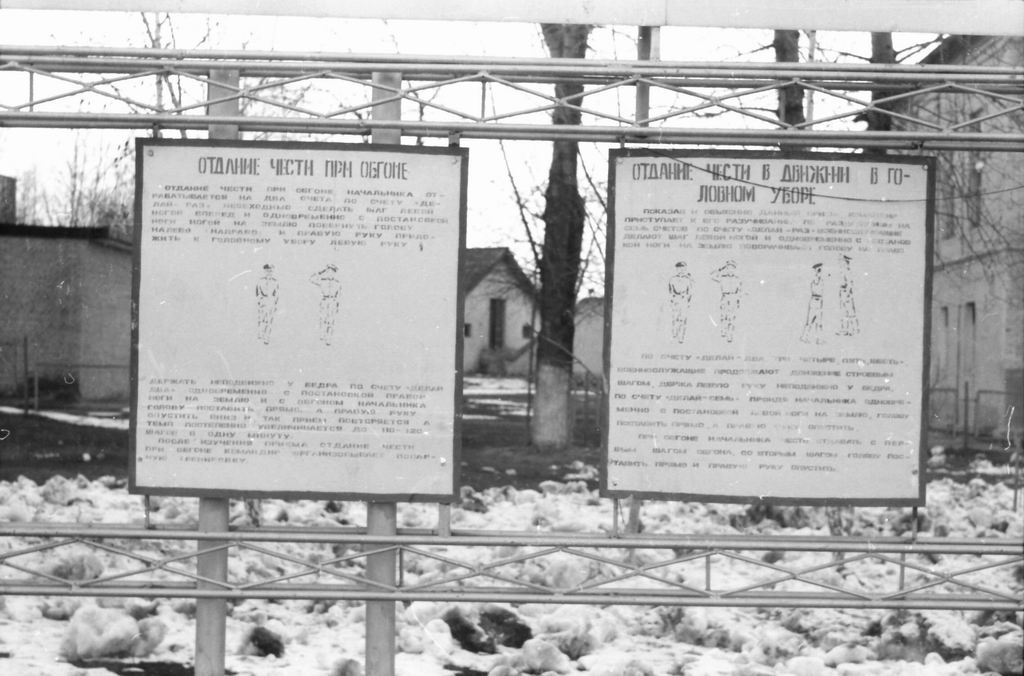 ОТДАНИЕ ЧЕСТИ ПРИ ОБГОНЕ
ОТДАНИЕ ЧЕСТИ ПРИ ОБГОНЕ НАЧАЛЬНИКА ОТ-
РАБАТЫВАЕТСЯ НА ДВА СЧЕТА ПО СЧЕТУ «ДЕ-
ЛАЙ-РАЗ» НЕОБХОДИМО СДЕЛАТЬ ШАГ ЛЕВОЙ
НОГОЙ ВПЕРЕД И ОДНОВРЕМЕННО С ПОСТАНОВКОЙ
НОГИ НОГОЙ НА ЗЕМЛЮ ПОВЕРНУТЬ ГОЛОВУ
НАЛЕВО (НАПРАВО) И ПРАВУЮ РУКУ ПРИЛО-
ЖИТЬ К ГОЛОВНОМУ УБОРУ ЛЕВУЮ РУКУ
ДЕРЖАТЬ НЕПОДВИЖНО У БЕДРА ПО СЧЕТУ «ДЕЛАЙ
ДВА» ОДНОВРЕМЕННО С ПОСТАНОВКОЙ ПРАВОЙ
НОГИ НА ЗЕМЛЮ И ОБГОНОМ НАЧАЛЬНИКА
ГОЛОВУ ПОСТАВИТЬ ПРЯМО, А ПРАВУЮ РУКУ
ОПУСТИТЬ ВНИЗ И ТАК ПРИЕМ ПОВТОРЯЕТСЯ А
ТЕМП ПОСТЕПЕННО УВЕЛИЧИВАЕТСЯ ДО 110-120
ШАГОВ В ОДНУ МИНУТУ.
ПОСЛЕ ИЗУЧЕНИЯ ПРИЕМА ОТДАНИЕ ЧЕСТИ
ПРИ ОБГОНЕ КОМАНДИР ОРГАНИЗОВЫВАЕТ
ТРЕНИРОВКУ.
ОТДАНИЕ ЧЕСТИ В ДВИЖЕНИИ В ГО-
ЛОВНОМ УБОРЕ
ПОКАЗАВ И ОБЪЯСНИВ ДАННЫЙ ПРИЕМ, КОМАНДИР
ПРИСТУПАЕТ К ЕГО РАЗУЧИВАНИЮ
СЕМЬ СЧЕТОВ ПО СЧЕТУ «ДЕЛАЙ-РАЗ» ВОЕННОСЛУЖАЩИЕ
ДЕЛАЮТ ШАГ ЛЕВОЙ НОГОЙ И ОДНОВРЕМЕННО С
НОГИ НА ЗЕМЛЮ ПОВОРАЧИВАЮТ ГОЛОВУ НА ПРАВО
ПО СЧЕТУ «ДЕЛАЙ-ДВА ТРИ ЧЕТЫРЕ ПЯТЬ ШЕСТЬ»
ВОЕННОСЛУЖАЩИЕ ПРОДОЛЖАЮТ ДВИЖЕНИЕ СТРОЕВЫМ
ШАГОМ, ДЕРЖА ЛЕВУЮ РУКУ НЕПОДВИЖНО У БЕДРА,
ПО СЧЕТУ «ДЕЛАЙ-СЕМЬ» ПРОЙДЯ НАЧАЛЬНИКА ОДНОВРЕ-
МЕННО С ПОСТАНОВКОЙ ЛЕВОЙ НОГИ НА ЗЕМЛЮ, ГОЛОВУ
ПОСТАВИТЬ ПРЯМО, А ПРАВУЮ РУКУ ОПУСТИТЬ
ПРИ ОБГОНЕ НАЧАЛЬНИКА ЧЕСТЬ ОТДАВАТЬ С ПЕР-
ВЫМ ШАГОМ ОБГОНА, СО ВТОРЫМ ШАГОМ ГОЛОВУ ПОС-
ТАВИТЬ ПРЯМО И ПРАВУЮ РУКУ ОПУСТИТЬ.